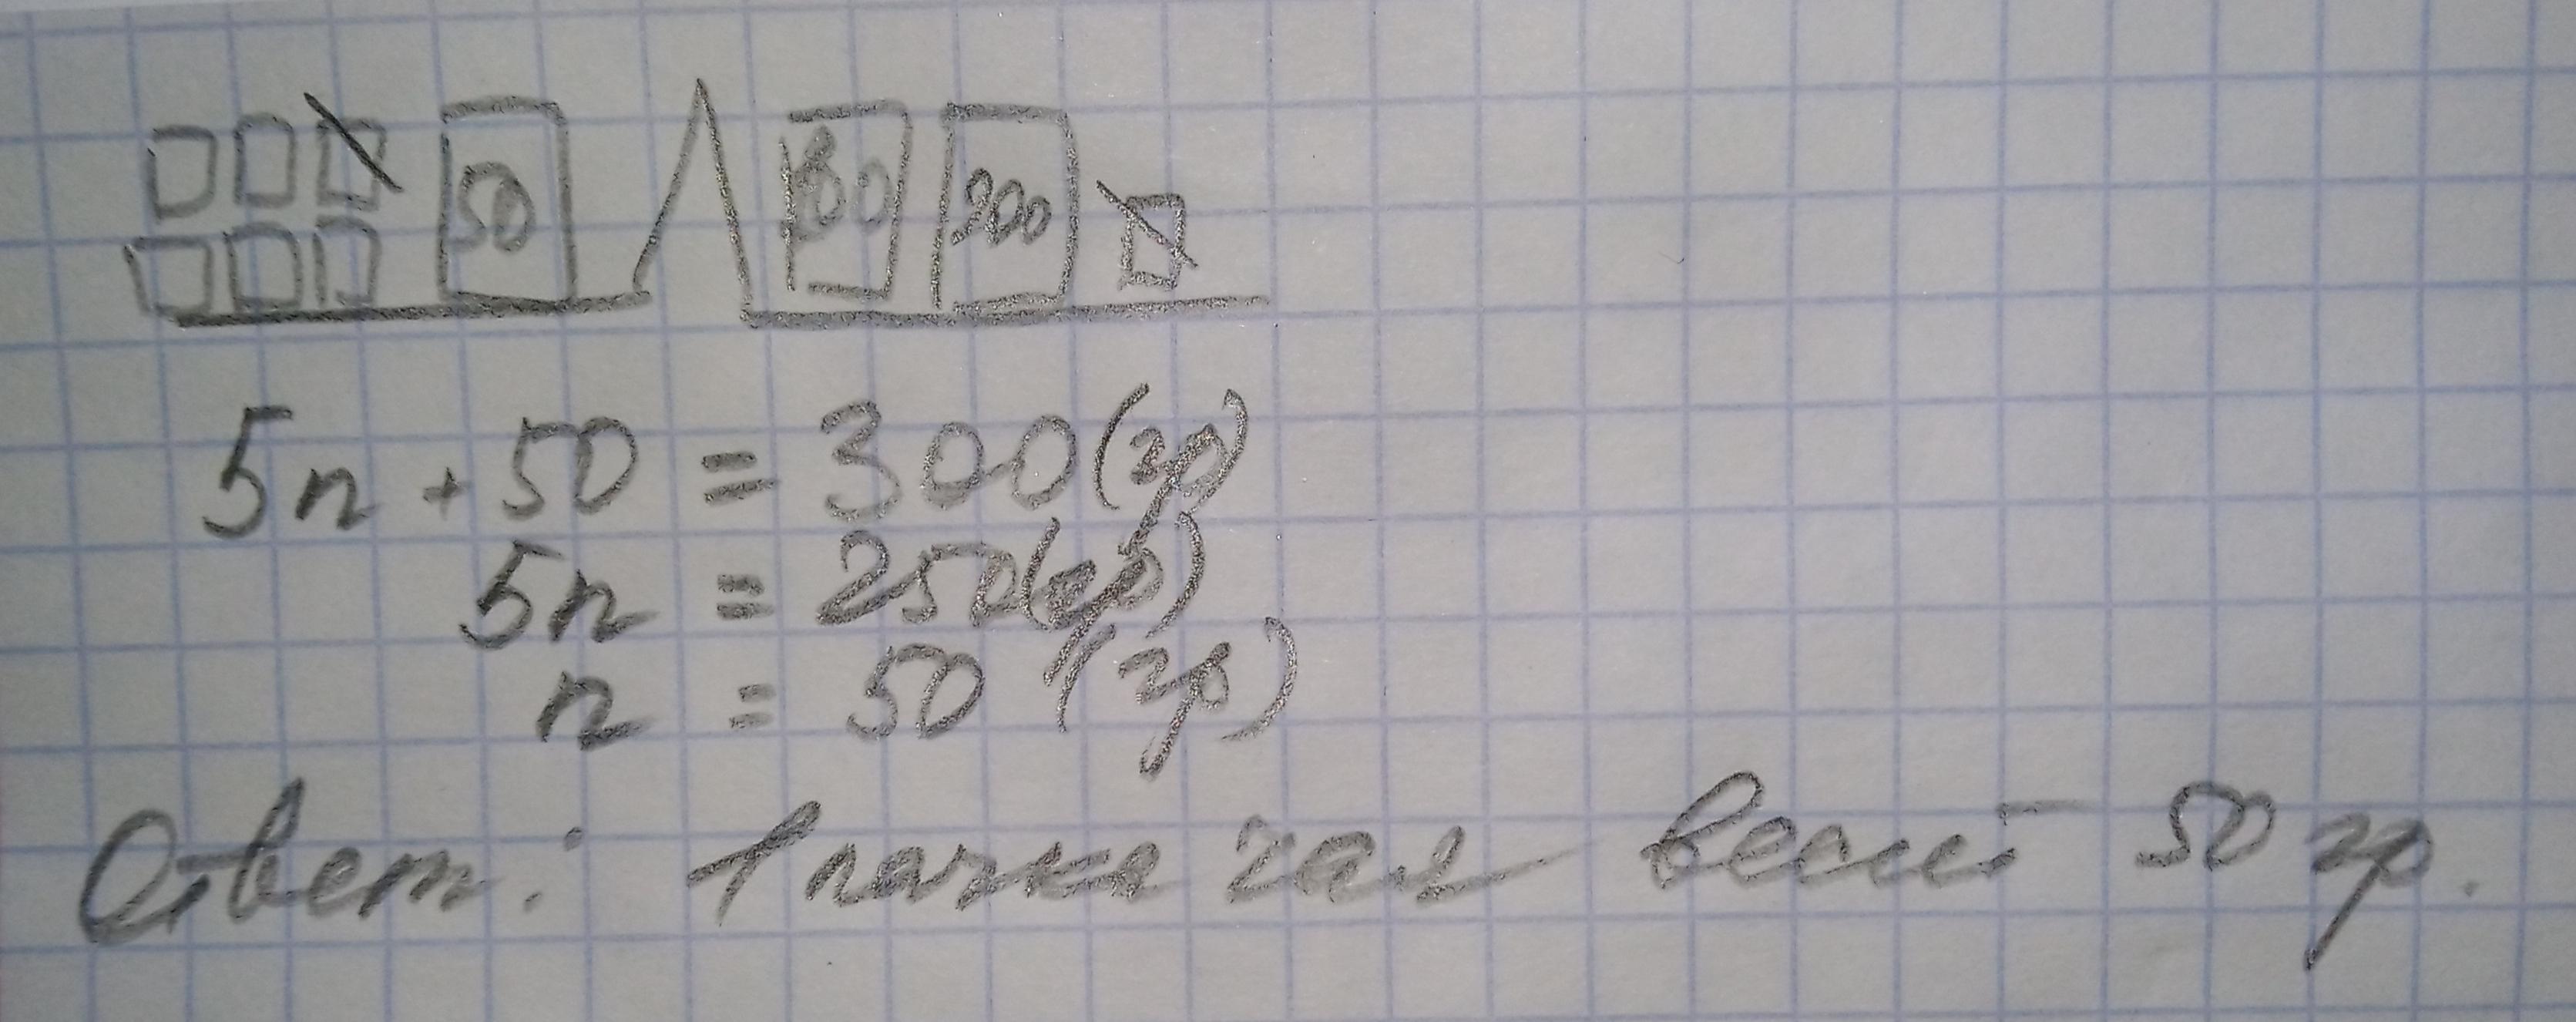 50 100 200
5п + 50 = 300 (гр)
5п = 250 (гр)
п = 50 (гр)
Ответ: 1 пачка чая весит 50 гр.